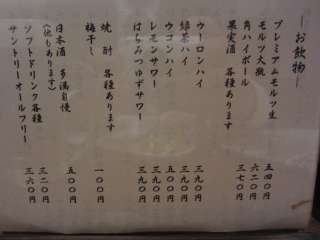 ―お飲物―
プレミアムモルツ生 五四〇円
モルツ大瓶 六二〇円
角ハイボール 三七〇円
果実酒 各種あります
ウーロンハイ 三九〇円
緑茶ハイ 三九〇円
ウコンハイ 五〇〇円
レモンサワー 三九〇円
はちみつゆずサワー 三九〇円
焼酎 各種あります
梅干し 一〇〇円
日本酒 多満自慢 五〇〇円
(他もあります)
ソフトドリンク各種 三二〇円
サントリーオールフリー 三六〇円